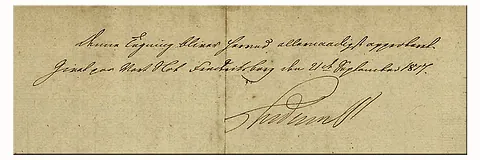 Denne Tegning bliver herved allernaadigst approberet.
Givet paa Vort Slot Frederiksberg den 21de September 1817.
Frederik R